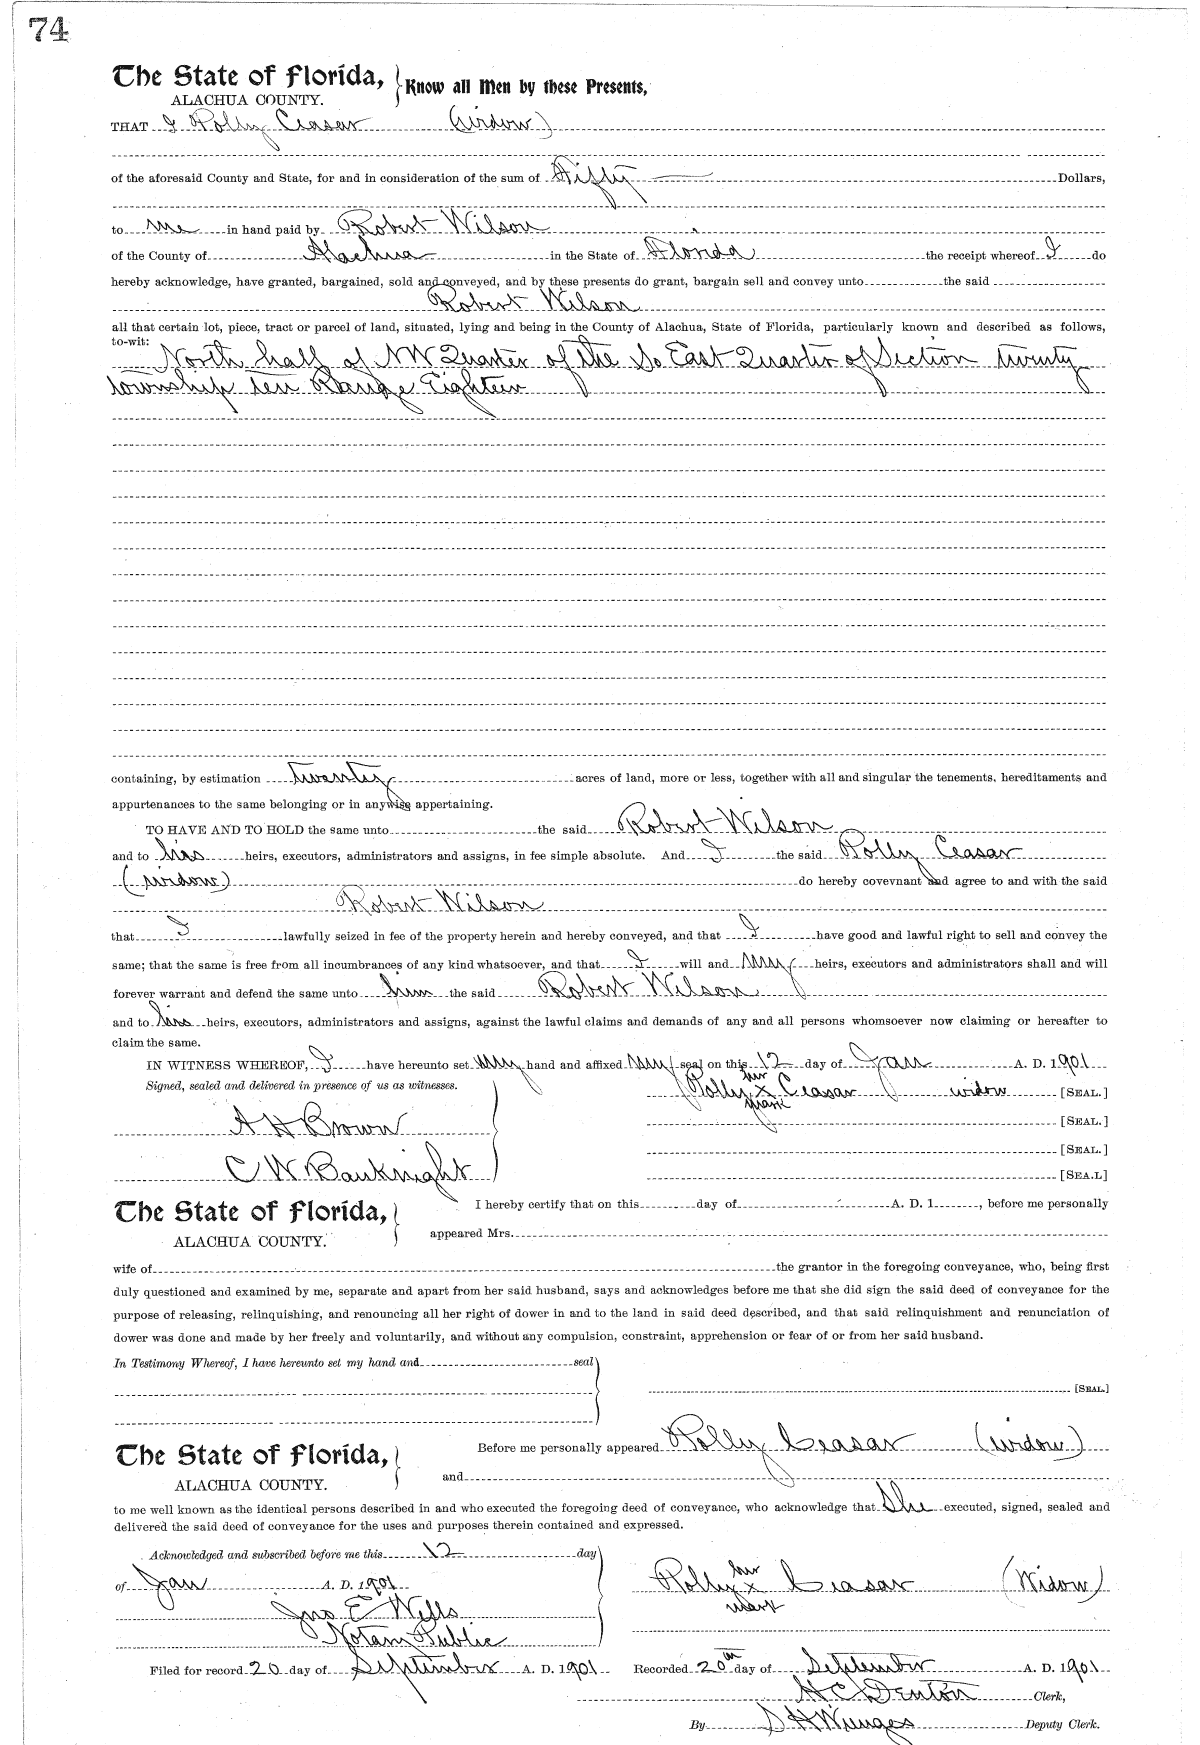 74
The State of Florida, Know all Men by these Presents,
ALACHUA COUNTY.
THAT I Polly Ceasar (widow)
of the aforesaid County and State, for and in consideration of the sum of Fifty Dollars,
to me in hand paid by Robert Wilson
of the County of Alachua in the State of Florida the receipt whereof I do
hereby acknowledge, have granted, bargained, sold and conveyed, and by these presents do grant, bargain sell and convey unto the said
Robert Wilson
all that certain lot, piece, tract or parcel of land, situated, lying and being in the County of Alachua, State of Florida, particularly known and described as follows,
to-wit:
North half of NW Quarter of the So East Quarter of Section twenty
township ten Range Eighteen
containing, by estimation twenty acres of land, more or less, together with all and singular the tenements, hereditaments and
appurtenances to the same belonging or in anywise appertaining.
TO HAVE AND TO HOLD the same unto the said Robert Wilson
and to his heirs, executors, administrators and assigns, in fee simple absolute. And I the said Polly Ceasar
(widow) do hereby covevnant and agree to and with the said
Robert Wilson
that I lawfully seized in fee of the property herein and hereby conveyed, and that I have good and lawful right to sell and convey the
same; that the same is free from all incumbrances of any kind whatsoever, and that I will and my heirs, executors and administrators shall and will
forever warrant and defend the same unto him the said Robert Wilson
and to his heirs, executors, administrators and assigns, against the lawful claims and demands of any and all persons whomsoever now claiming or hereafter to
claim the same.
IN WITNESS WHEREOF, I have hereunto set my hand and affixed my seal on this 12 day of Jan A. D. 1901
Signed, sealed and delivered in presence of us as witnesses.
her
Polly x Ceasar widow [SEAL.]
mark
A H Brown [SEAL.]
[SEAL.]
C W Bauknight [SEA.L]
The State of Florida, I hereby certify that on this day of A. D. 1 , before me personally
ALACHUA COUNTY. appeared Mrs.
wife of the grantor in the foregoing conveyance, who, being first
duly questioned and examined by me, separate and apart from her said husband, says and acknowledges before me that she did sign the said deed of conveyance for the
purpose of releasing, relinquishing, and renouncing all her right of dower in and to the land in said deed described, and that said relinquishment and renunciation of
dower was done and made by her freely and voluntarily, and without any compulsion, constraint, apprehension or fear of or from her said husband.
In Testimony Whereof, I have hereunto set my hand and seal
[SEAL.]
The State of Florida, Before me personally appeared Polly Ceasar (widow)
ALACHUA COUNTY. and
to me well known as the identical persons described in and who executed the foregoing deed of conveyance, who acknowledge that She executed, signed, sealed and
delivered the said deed of conveyance for the uses and purposes therein contained and expressed.
Acknowledged and subscribed before me this 12 day
of Jan A. D. 1901
her
Polly x Ceasar (Widow)
mark
Jno E Wells
Notary Public
Filed for record 20 day of September A. D. 1901 Recorded 20th day of September A. D. 1901
H C Denton Clerk,
By S H Wienges Deputy Clerk.